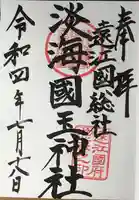 奉拝
遠江國総社
淡海國玉神社
令和四年一月十八日